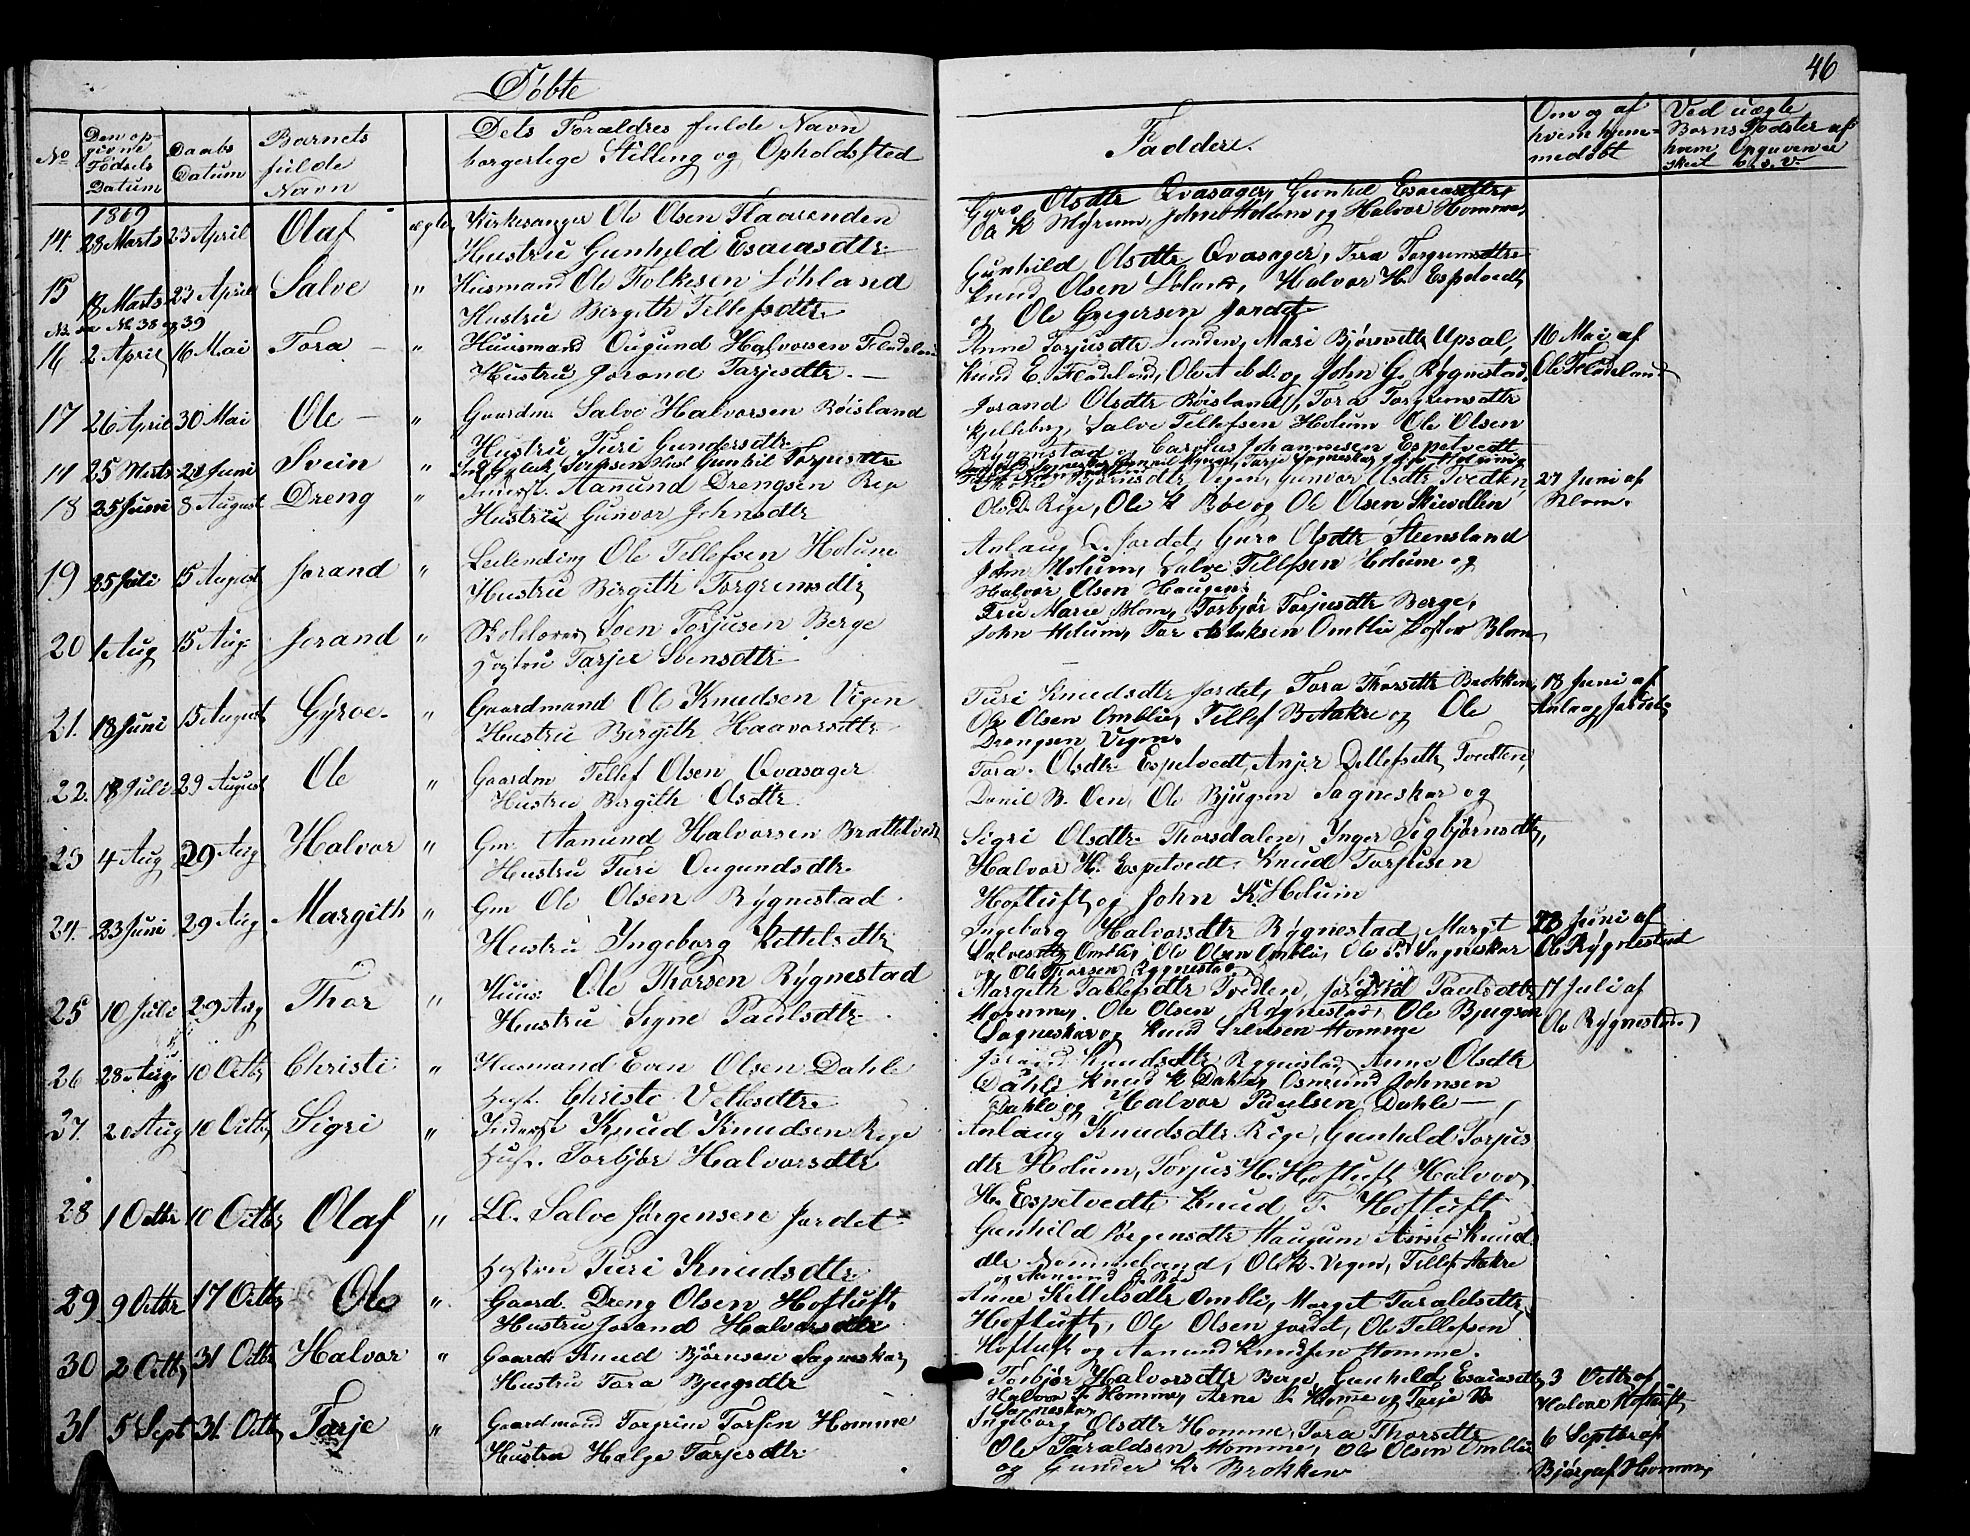 46
Døbte
No
Den op-
givne
Fødsels
Datum
Daabs
Datum
Barnets
fulde
Navn
Dets Forældres fulde Navn
borgerlige Stilling og Opholdssted
Faddere.
Om og af
hvem hjem-
medøbt
Ved uægte
Børns Fødsler af
hvem Opgaven er
skeet o. s. v.
1869
14. 28 Marts 23 April Olaf ægte Kirkesanger Ole Olsen Flaarenden
Hustru Gunhild Esaiasdtr
Gyro Olsdtr Qvasager, Gunhild Esaiasdtr,
Ole K Myrum, John Holum og Halvor Homme,
15 18 Marts 23 April Salve " Huusmand Ole Folkesen Løhland
Hustru Birgith Tellefsdtr
Gunhild Olsdtr Qvasager, Tora Torgrimsdtr
Knud Olsen Løland, Halvor H. Espetvedt,
og Ole Gregersen Jordet
No 38 og 39
16 2 April 16 Mai Tora " Huusmand Ougund Halvorsen Fladeland
Hustru Jorand Tarjesdtr. —
Anne Torjusdtr Lunden, Mari Bjørnsdtr Upsal,
Knud E. Fladeland, Olert ibd. og John G. Rygnestad.
16 Mai af
Ole Fladeland
17 26 April 30 Mai Ole — " Gaardm. Salve Halvorsen Røisland
Hustru Turi Gundersdtr.
Jorand Olsdtr Røisland, Tora Torgrimsdtr
Kjelleberg, Salve Tellefsen Holum Ole Olsen
Rygnestad og Carolus Johannesen Espetvedt
11 25 Marts 21 Juni Svein " Hust Gunhil Torjusdtr
18 25 Juni 8 August Dreng " Inderst. Aamund Drengsen Rige
Hustru Gunvor Johnsdtr
Bjørnsdtr Vegen, Gunvor Olsdtr Tvedten,
Ole D. Rige, Ole K Bøe og Ole Olsen
27 Juni af
Blom.
19 25 Juli 15 August Jorand " Leilending Ole Tellefsen Holum
Hustru Birgith Torgrimsdtr
Anlaug L. Jordet, Guro Olsdtr Steensland
John Holum, Salve Tellefsen Holum og
Halvor Olsen Haugen.
20 1 Aug 15 Aug. Jorand " Skolelærer Sven Torjusen Berge
Hustru Tarjer Svensdtr.
Fru Marie Blom, Torbjør Torjusdtr Berge,
John Holum, Tor Aslaksen Omblie Pastor Blom
21. 18 Juni 15 August Gyroe. " Gaardmand Ole Knudsen Vigen
Hustru Birgith Haavorsdtr
Turi Knudsdtr Jordet, Tora Thorsdtr Brokken,
Ole Olsen Omblie, Tellef B Aakre og Ole
Drengsen Vegen.
18 Juni af
Anlaug Jordet
22. 18 Juli 29 August Ole " Gaardm Tellef Olsen Qvasager
Hustru Birgith Olsdtr.
Tora Olsdtr. Espetvedt, Anjer Tellefsdtr Tvedten,
Danil B. Oen, Ole Bjugsen Sagneskar og
23 4 Aug 29 Aug Halvor " Gm. Aamund Halvorsen Bratteland
Hustru Turi Ougundsdtr.
Sigri Olsdtr. Thorsdalen, Ynger Sigbjørnsdtr,
Halvor H. Espetvedt. Knud Torjusen
Hoftuft, og John K. Holum
24. 23 Juni 29 Aug Margith " Gm Ole Olsen Rygnestad
Hustru Ingeborg Kittelsdtr
Ingeborg Halvorsdtr Rygnestad, Margit
Salvesdtr Omblie, Ole Olsen Omblie, Ole B. Sagneskar
og Ole Thorsen Rygnestad
23 Juni af
Ole Rygnestad
25 10 Juli 29 Aug Thor " Huus. Ole Thorsen Rygnestad
Hustru Signe Paulsdtr.
Margith Tallefsdtr Tvedten, Paulsdtr
Homme, Ole Olsen Rygnestad, Ole Bjugsen
Sagneskar og Knud Svensen Homme
17 Juli af
Ole Rygnestad
26 28 Aug. 10 Octbr Christi " Husmand Even Olsen Dahle
Hust. Christi Vetlesdtr.
Knudsdtr Rygnestad, Anne Olsdtr
Dahle Knud K Dahle, Osmund Johnsen
Dahle og Halvor Paulsen Dahle —
27. 20 Aug 10 Octbr Sigri " Inderst Knud Knudsen Rige
Hust. Torbjør Halvorsdtr
Anlaug Knudsdtr Rige, Gunhild Torjus
dtr Holum, Torjus H. Hoftuft Halvor
H. Espetvedt Knud T. Hoftuft
28 1 Octbr 10 Octbr Olaf " Ll. Salve Jørgensen Jordet
Hustru Turi Knudsdtr
Gunhild Jørgensdtr Haugum Anne Knud
dtr Nommeland, Ole K. Vegen, Tellef Aakre
og Aamund G. Bø
29 9 Octbr 17 Octbr Ole " Gaard. Dreng Olsen Hoftuft,
Hustru Jorand Halvorsdtr
Anne Kittelsdtr Omblie, Marget Taraldsdtr
Hoftuft, Ole Olsen Jordet, Ole Tellefsen
Hoftuft og Aamund Knudsen Homme.
30 2 Octbr 31 Octbr Halvor " Gaard. Knud Bjørnsen Sagneskar
Hustru Tora Bjugsdtr
Torbjør Halvorsdtr Berge, Gunhild Esaiasdtr,
Halvor T. Homme, Arne K. Homme og Tarje B
Sagneskar
3 Octbr af
Halvor Hoftuft
31 5 Sept 31. Octbr Tarje " Gaardmand Torgrim Torsen Homme
Hustru Helge Tarjesdtr
Ingeborg Olsdtr Homme, Tora Thorsdtr
Ole Taraldsen Homme, Ole Olsen Omblie
og Gunder K. Brokken
6 Septbr af
Bjørgulf Homme